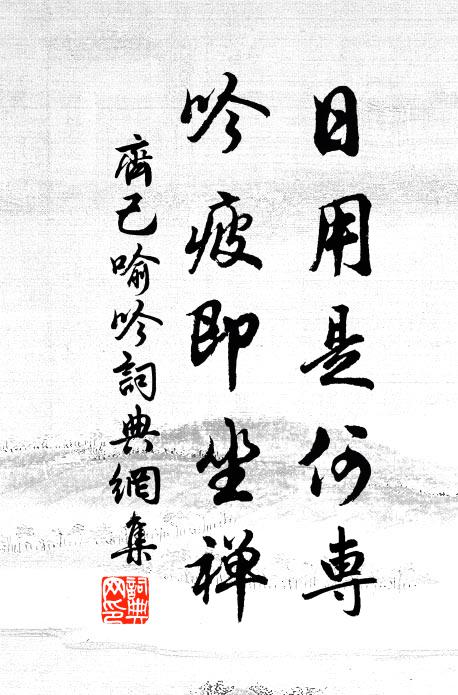 日用是何専
吟疲即坐禅
齊己喻吟詞典網集
詞典